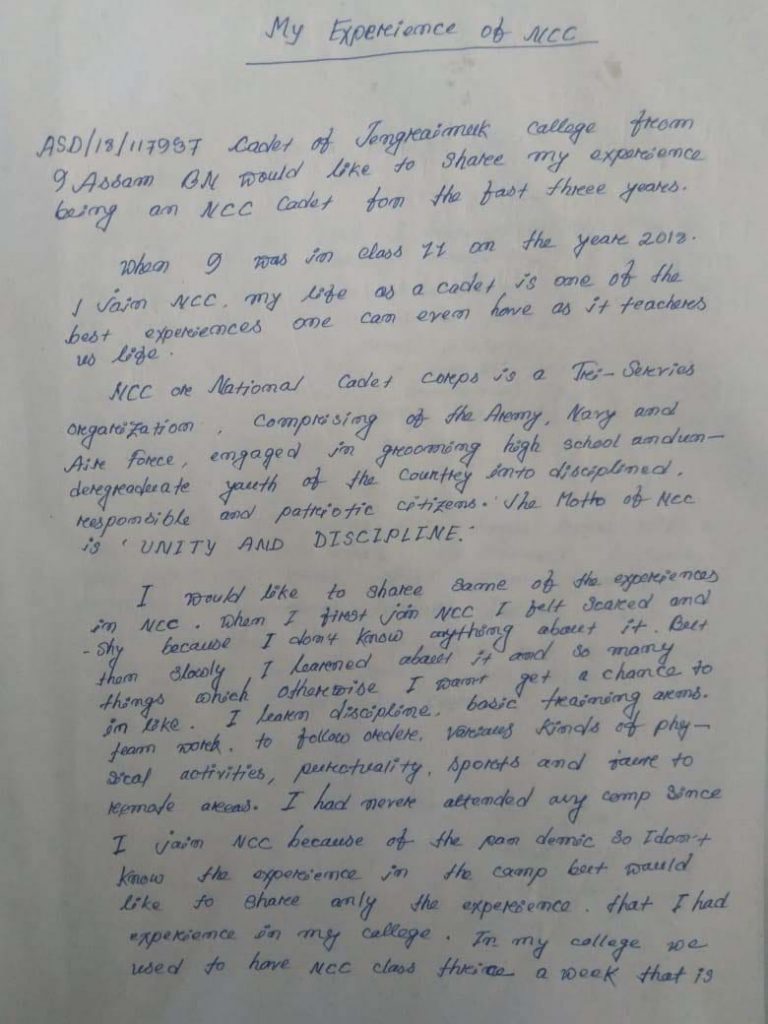 My Experience of NCC
ASD/18/117937 Cadet of Jengraimukh callege from
9 Assam BN would like to share my experience
being an NCC Cadet fom the fast three years.
When I was in class 11 on the year 2018.
I jain NCC. my life as a cadet is one of the
best experiences one can even have as it teacheres
us life.
NCC or National Cadet Corps is a Tri-Servies
organization, comprising of the Army, Navy and
Air Force, engaged in grooming high school and un-
deregraduate youth of the country into disciplined,
responsible and patriotic citizens. The Motto of NCC
is 'UNITY AND DISCIPLINE.'
I would like to share same of the experiences
in NCC. When I first join NCC I felt scared and
- Shy because I don't know anything about it. But
them slowly I learned about it and so many
things which otherwise I want get a chance to
in like. I learn discipline, basic training arms.
team work, to follow order, variaus kinds of phy-
sical activities, punctuality, sports and to
remate areas. I had never attended any comp since
I jain NCC because of the pan demic so I don't
know the experience in the camp but would
like to share anly the experience. that I had
experience in my callege. In my callege we
used to have NCC class thrice a week that is